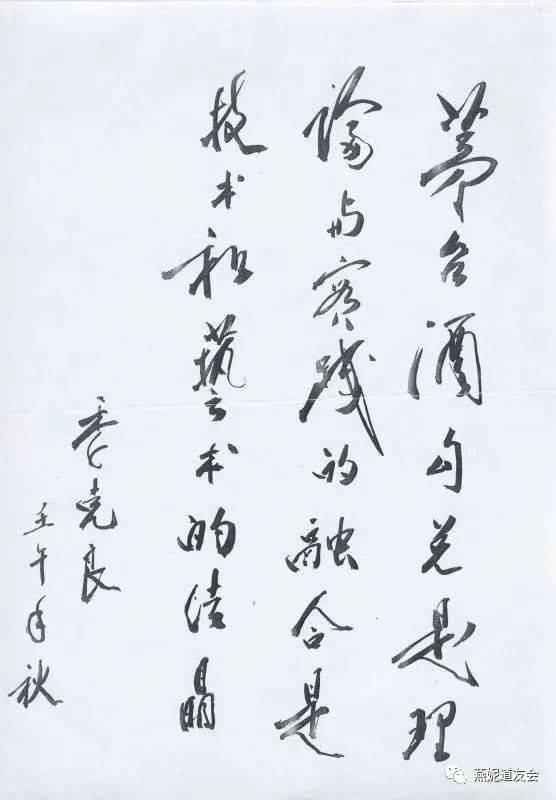 茅台酒勾兑是理
論与实践的融合是
技术和藝术的结晶
季克良
壬午年秋
燕妮道友会